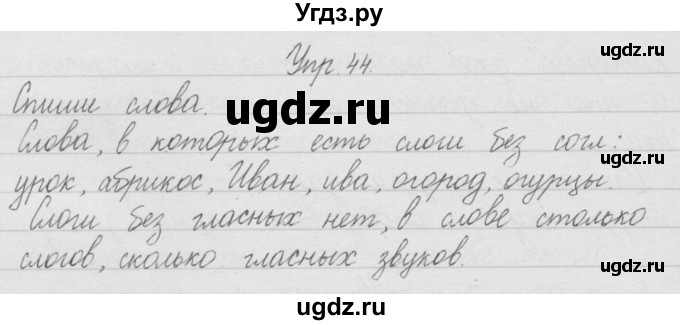 Угдз.ру
ugdz.ru
Упр. 44.
Спиши слова.
ugdz.ru
ugdz.ru
Слова, в которых есть слоги без согл:
ugdz.ru
урок, абрикос, Иван, ива, огород, огурцы.
Слоги без гласных нет, в слове столько
слогов, сколько гласных звуков.
ugdz.ru
ugdz.ru